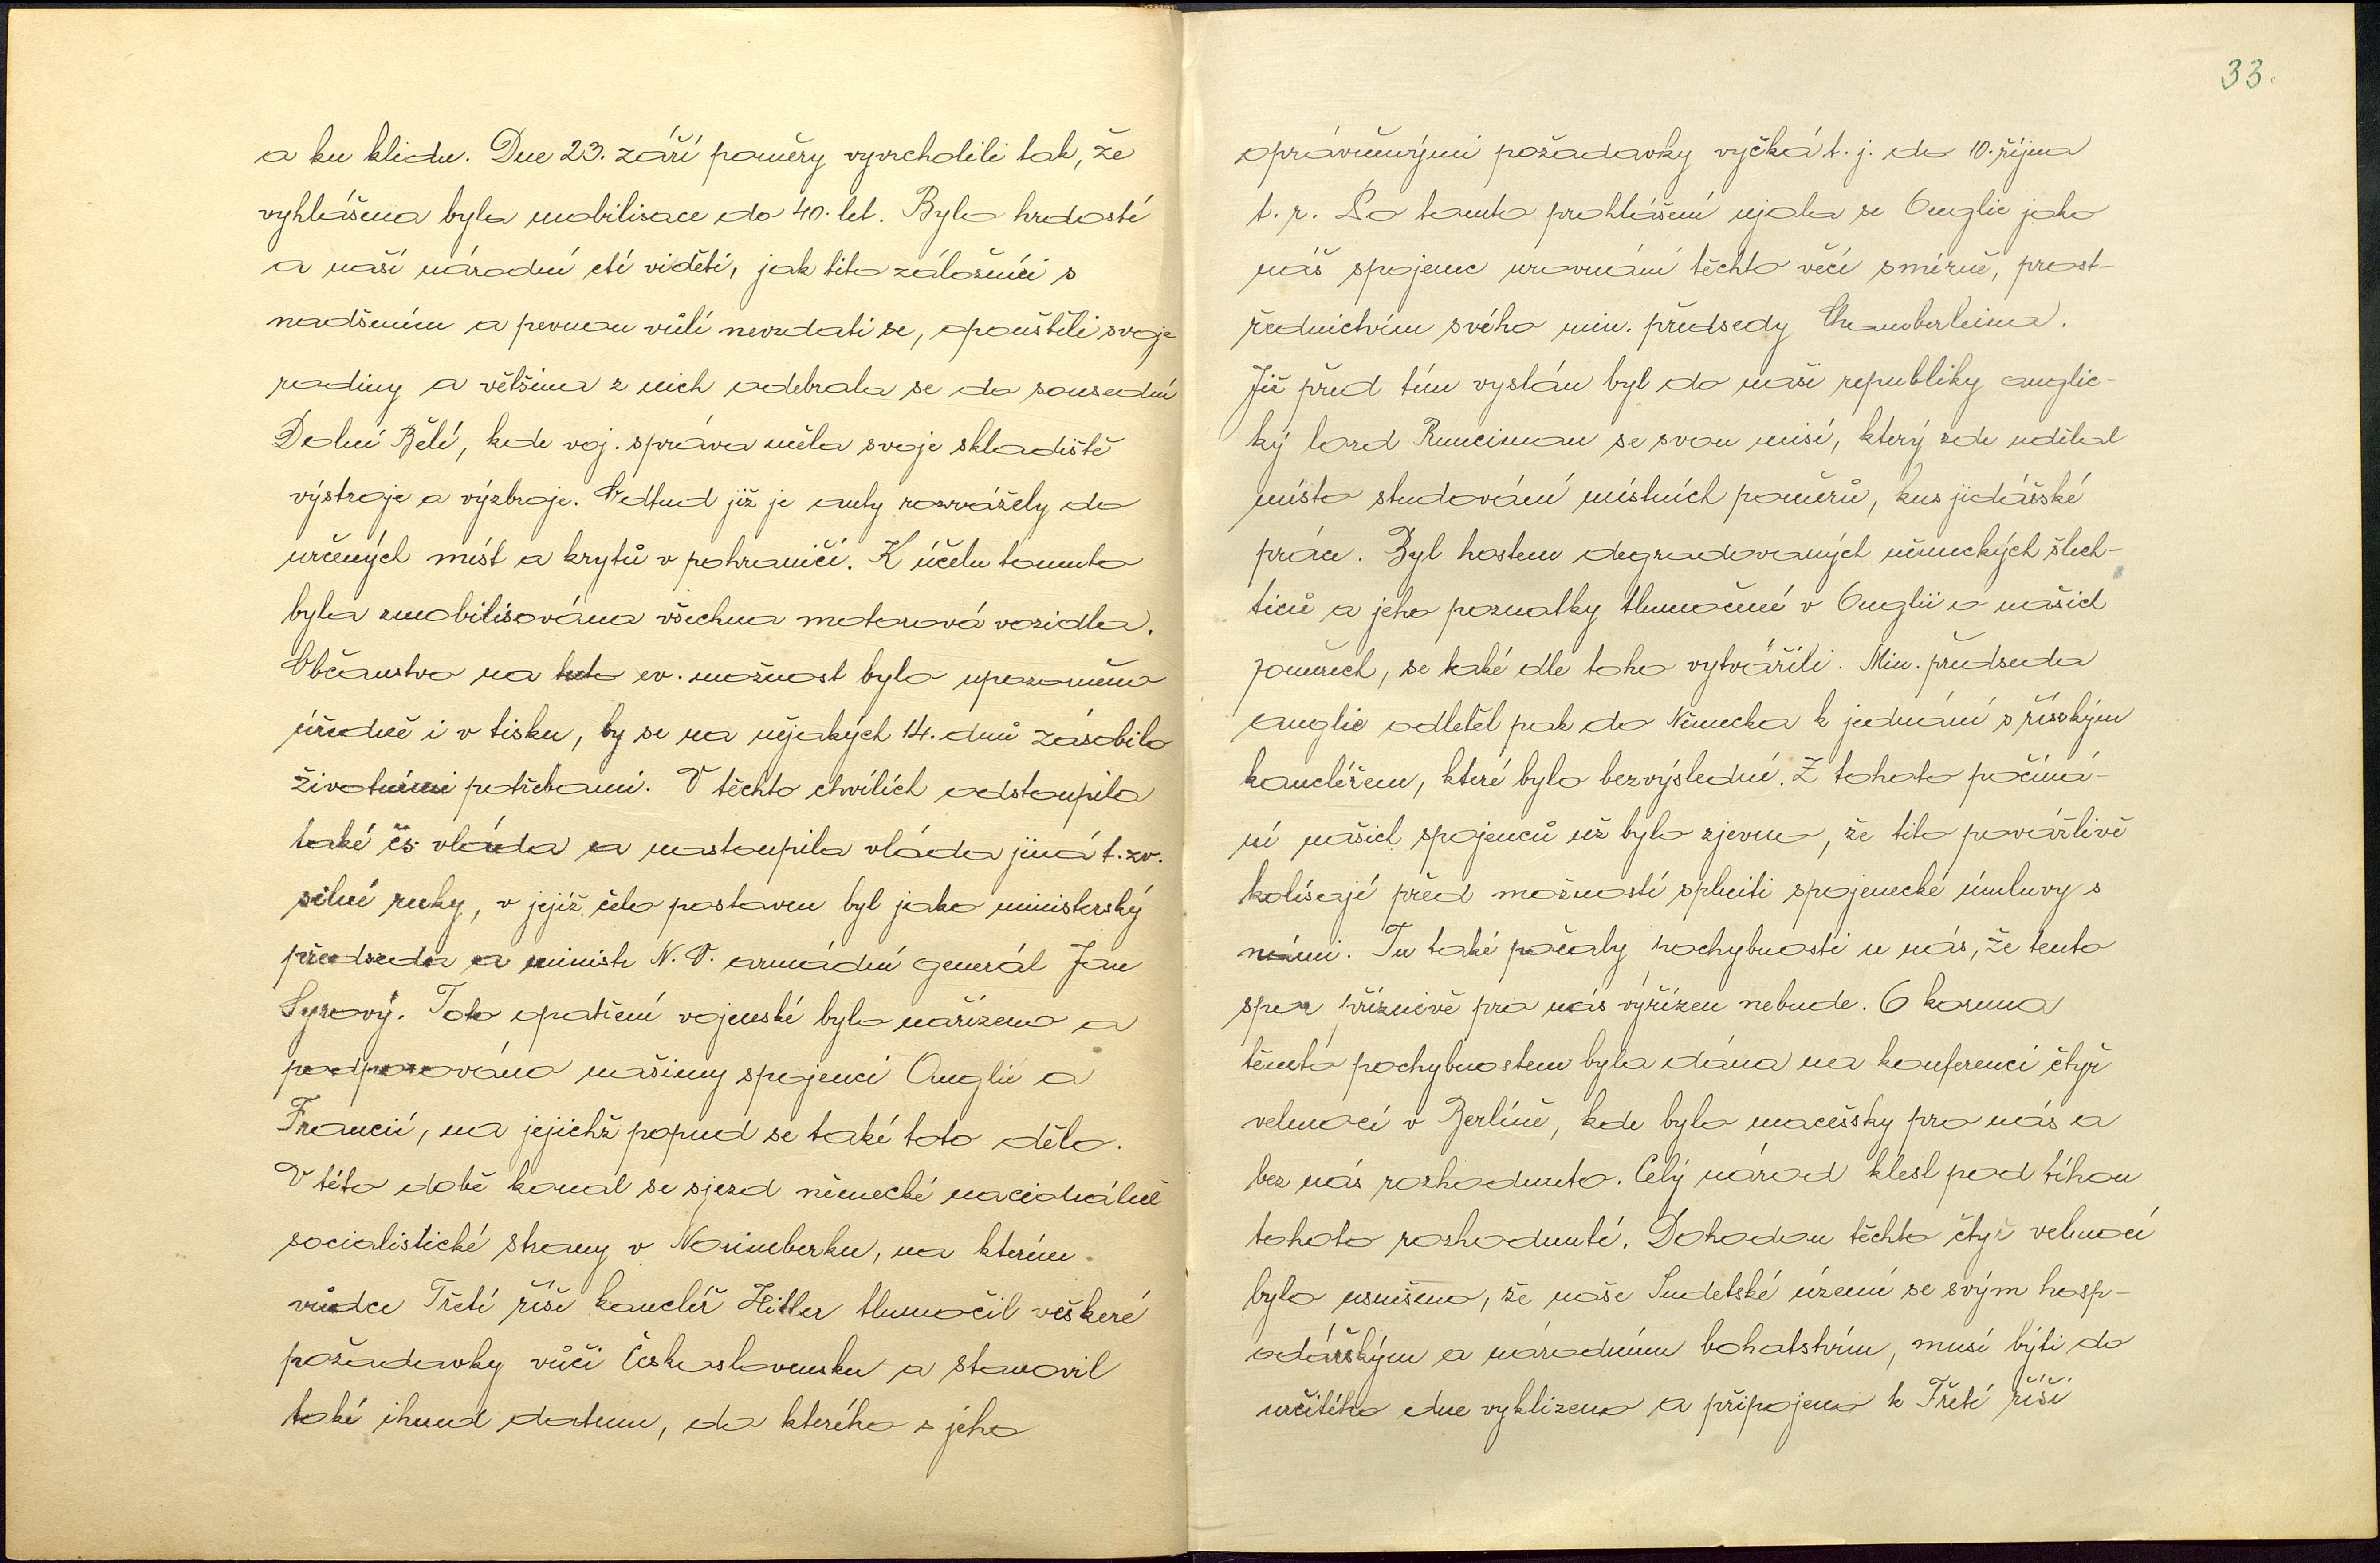 a ku klidu. Dne 23. září poměry vyvrcholili tak, že
vyhlášena byla mobilisace do 40. let. Bylo hrdostí
a naší národní ctí viděti, jak tito záložníci s
nadšením a pevnou vůlí nevzdati se, opouštěli svoje
rodiny a většina z nich odebrala se do sousední
Dolní Bělé, kde voj. správa měla svoje skladiště
výstroje a výzbroje. Odtud již je auty rozvážely do
určených míst a krytů v pohraničí. K účelu tomuto
byla zmobilisována všechna motorová vozidla.
Občanstvo na tuto ev. možnost bylo upozorněno
úředně i v tisku, by se na nějakých 14. dnů zásobilo
životními potřebami. V těchto chvílích odstoupila
také čs. vláda a nastoupila vláda jiná t. zv.
silné ruky, v jejíž čelo postaven byl jako ministerský
předseda a ministr N. O. armádní generál Jan
Syrový. Toto opatření vojenské bylo nařízeno a
podporováno našimy spojenci Anglií a
Francií, na jejichž popud se také toto dělo.
V této době konal se sjezd německé nacionálně
socialistické strany v Norimberku, na kterém
vůdce Třetí říše kancléř Hitler tlumočil veškeré
požadavky vůči Československu a stanovil
také ihned datum, do kterého s jeho
33.
oprávněnými požadavky vyčká t. j. do 10. října
t. r. Po tomto prohlášení ujala se Anglie jako
náš spojenec urovnání těchto věcí smírně, prost-
řednictvím svého min. předsedy Chamberleina.
Již před tím vyslán byl do naší republiky anglic-
ký lord Runciman se svou misí, který zde udělal
místo studování místních poměrů, kus jidášské
práce. Byl hostem degradovaných německých šlech-
ticů a jeho poznatky tlumočené v Anglii o našich
poměrech, se také dle toho vytvářili. Min. předseda
anglie odletěl pak do Německa k jednání s říšským
kancléřem, které bylo bezvýsledné. Z tohoto počíná-
ní našich spojenců už bylo zjevno, že tito povážlivě
kolísají před možností splniti spojenecké úmluvy s
námi. Tu také počaly pochybnosti u nás, že tento
spor příznivě pro nás vyřízen nebude. A koruna
těmto pochybnostem byla dána na konferenci čtyř
velmocí v Berlíně, kde bylo macešsky pro nás a
bez nás rozhodnuto. Celý národ klesl pod tíhou
tohoto rozhodnutí. Dohodou těchto čtyř velmocí
bylo usnešeno, že naše Sudetské území se svým hosp-
odářským a národním bohatstvím, musí býti do
určitého dne vyklizeno a připojeno k Třetí říši